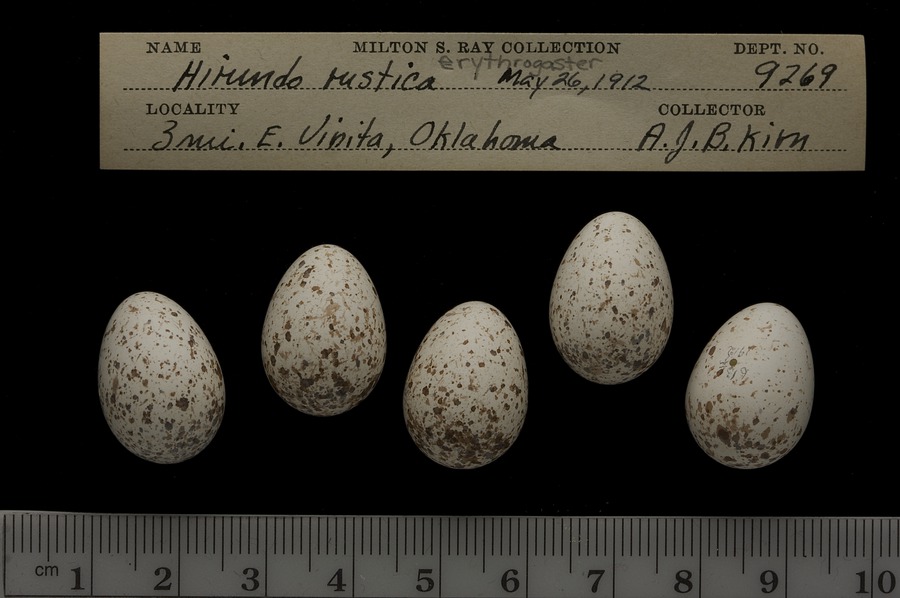 NAME MILTON S. RAY COLLECTION DEPT. NO.
erythrogaster
Hirundo rustica May 26, 1912 9269
LOCALITY COLLECTOR
3 mi. E. Vinita, Oklahoma A.J.B. Kirn
cm 1 2 3 4 5 6 7 8 9 10